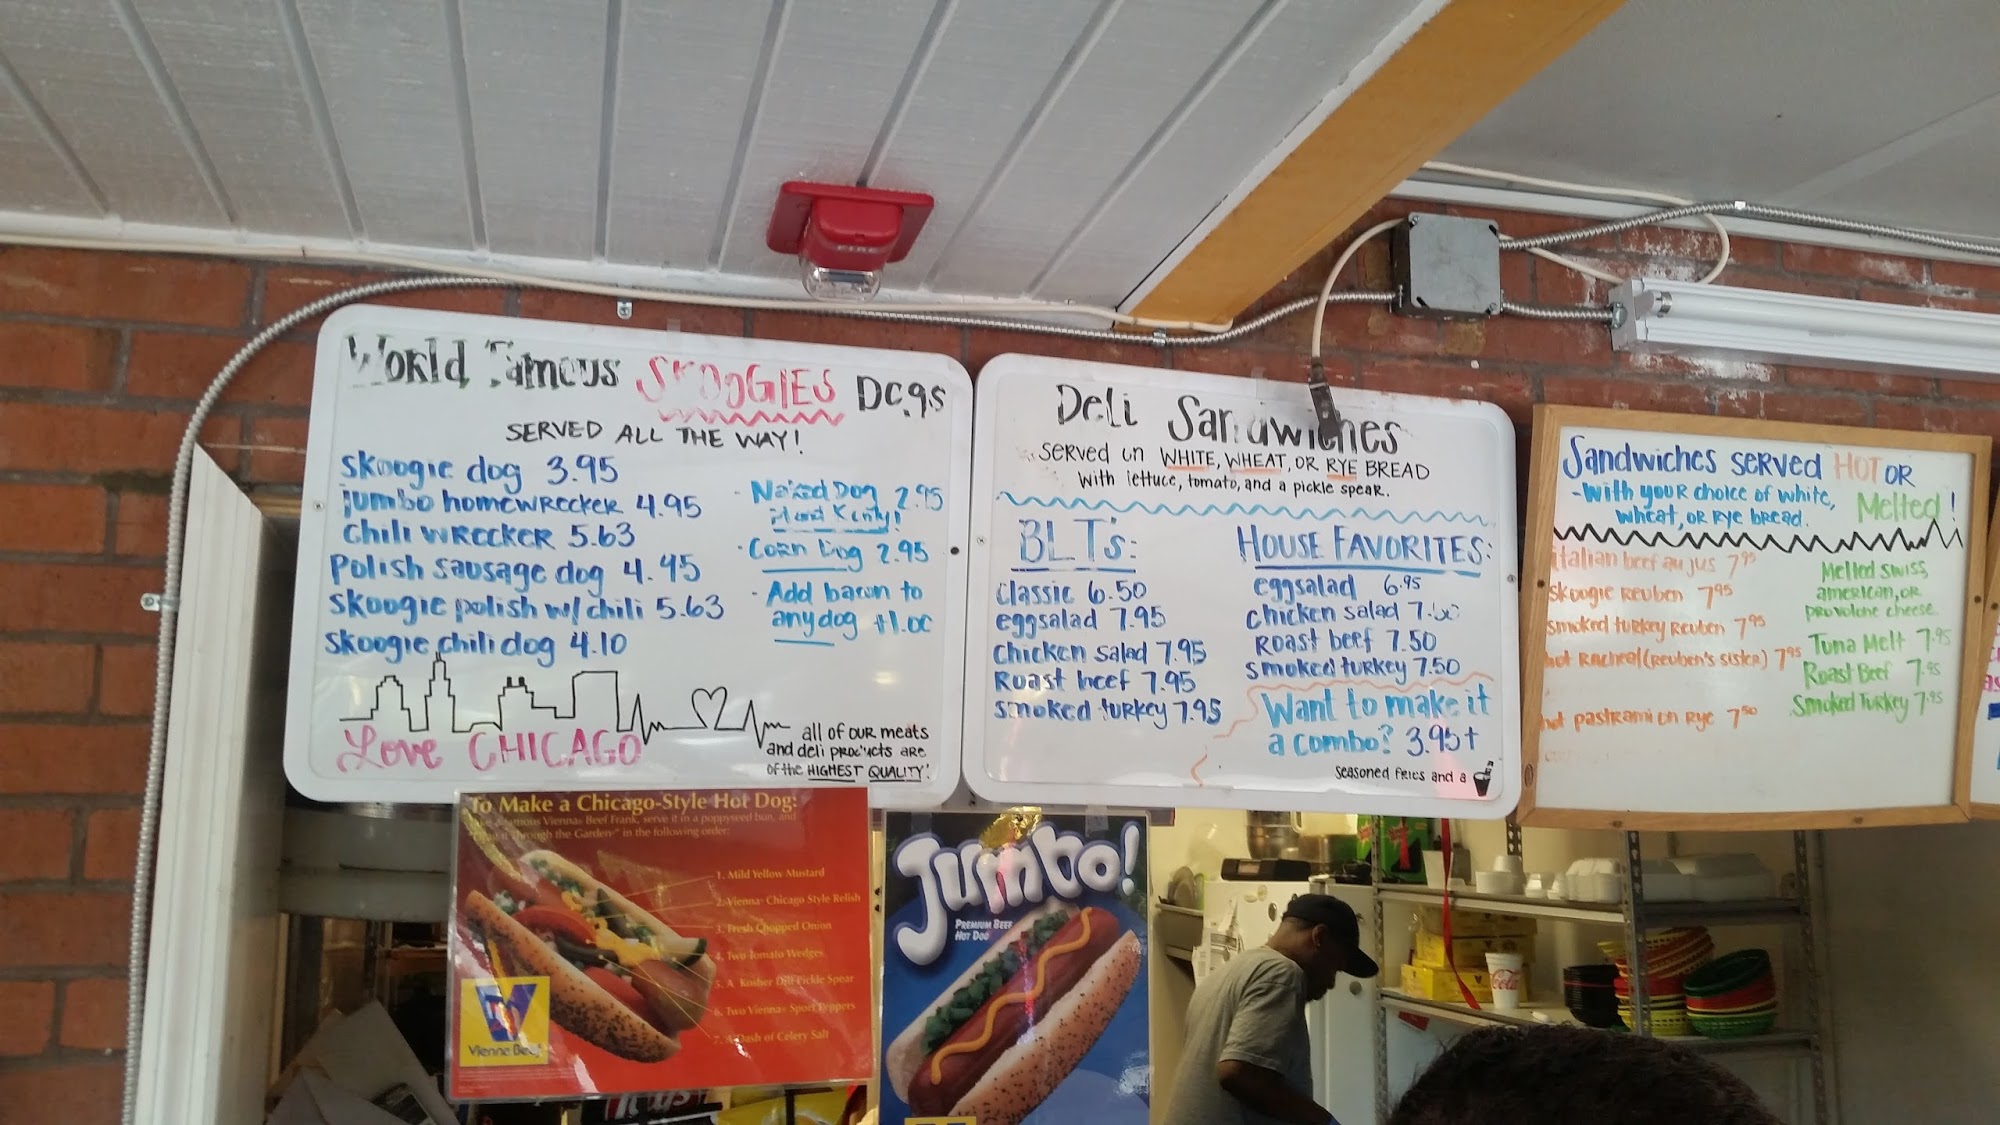 FIRE
World Famous SKOOGIES Dogs
SERVED ALL THE WAY!
skoogie dog 3.95
jumbo homewrecker 4.95
chili wrecker 5.63
polish sausage dog 4.45
skoogie polish w/ chili 5.63
skoogie chili dog 4.10
- Naked Dog 2.95
pland Kenty!
- Corn Dog 2.95
- Add bacon to
any dog +1.00
Love CHICAGO
all of our meats
and deli products are
of the HIGHEST QUALITY!
Deli Sandwiches
served on WHITE, WHEAT, OR RYE BREAD
with lettuce, tomato, and a pickle spear.
BLT's:
classic 6.50
eggsalad 7.95
chicken salad 7.95
Roast beef 7.95
smoked turkey 7.95
HOUSE FAVORITES:
eggsalad 6.95
chicken salad 7.50
Roast beef 7.50
smoked turkey 7.50
Want to make it
a combo? 3.95+
seasoned fries and a
Sandwiches served HOT OR
- with your choice of white, Melted!
wheat, or rye bread.
italian beef au jus 7.95
skoogie reuben 7.95
smoked turkey Reuben 7.95
hot Racheal (Reuben's sister) 7.95
hot pastrami on rye 7.50
Melted swiss,
american, or
provolone cheese.
Tuna Melt 7.95
Roast Beef 7.95
Smoked Turkey 7.95
To Make a Chicago-Style Hot Dog:
famous Vienna® Beef Frank, serve it in a poppyseed bun, and
it through the Garden" in the following order:
1. Mild Yellow Mustard
2. Vienna® Chicago Style Relish
3. Fresh Chopped Onion
4. Two Tomato Wedges
5. A Kosher Dill Pickle Spear
6. Two Vienna® Sport Peppers
7. A Dash of Celery Salt
Vienna Beef
Jumbo!
PREMIUM BEEF
HOT DOG
Coca-Cola